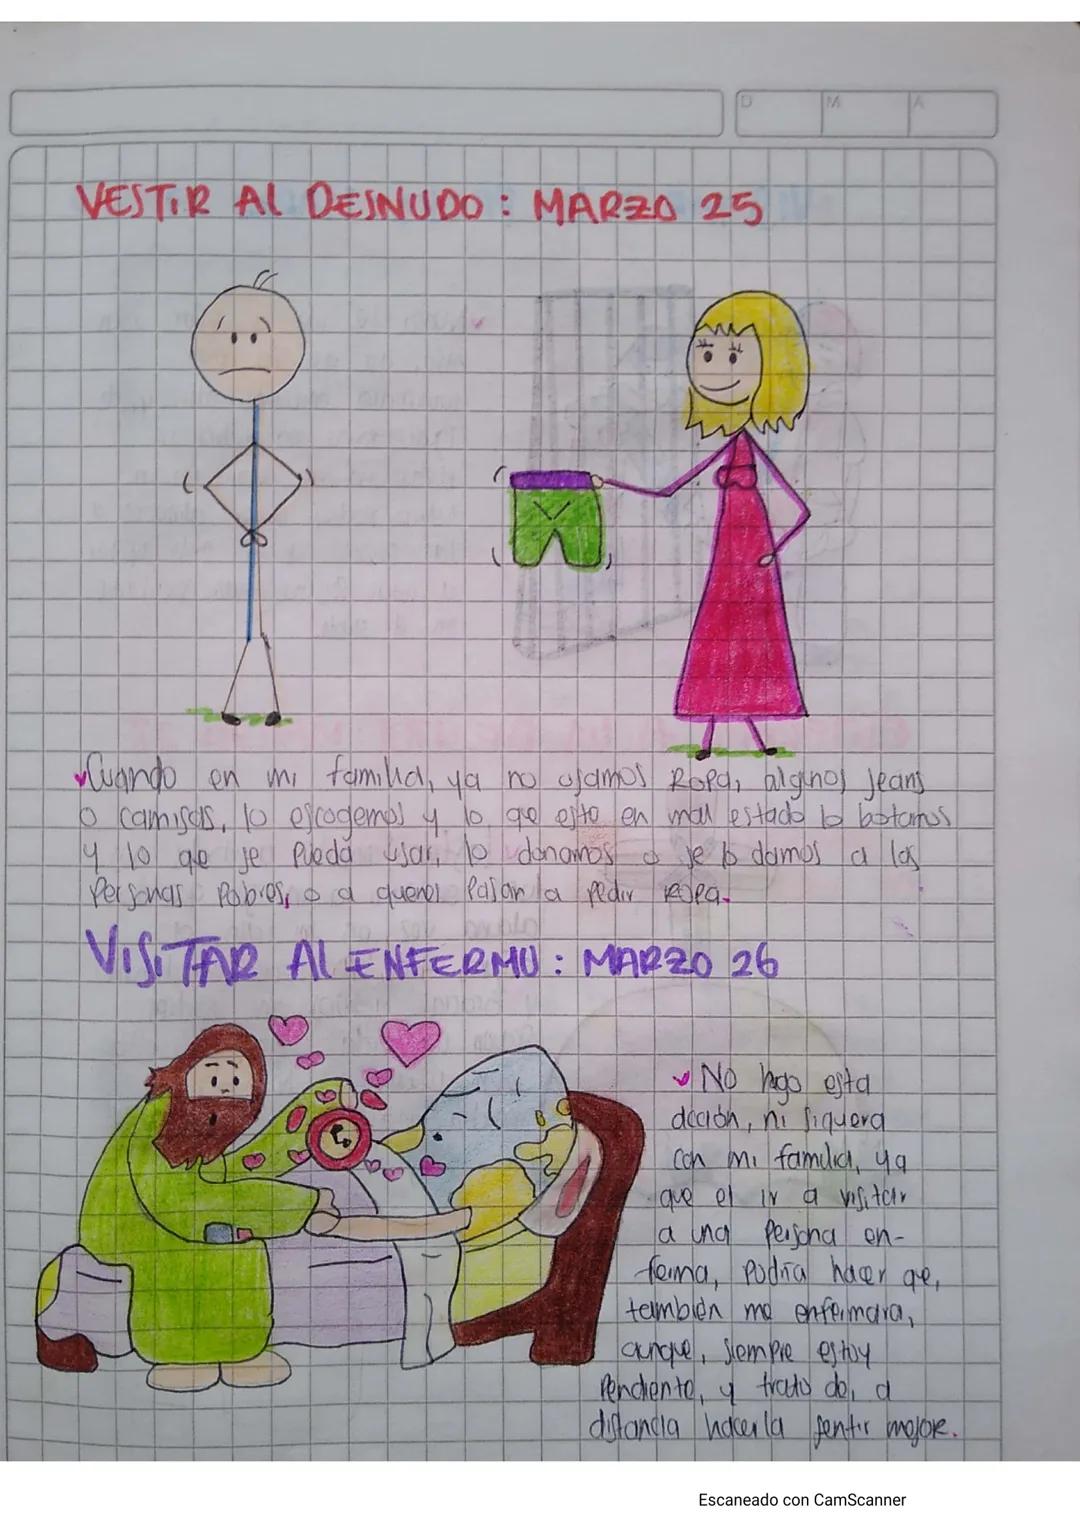 D M A
VESTIR AL DESNUDO: MARZO 25
Cuando en mi familia, ya no usamos Ropa, algunos jeans
o camisas, lo escogemos y lo que este en mal estado lo botamos
y lo que se pueda usar, lo donamos o se lo damos a las
Personas Pobres, o a quenes Pasan a pedir ropa.
VISITAR AL ENFERMO: MARZO 26
No hago esta
acción, ni siquera
con mi familia, ya
que el ir a visitar
a una persona en-
ferma, Podria hacer que,
también me enfermara,
aunque, siempre estoy
Pendiente, y trato de, a
distancia hacerla sentir mejor.
Escaneado con CamScanner